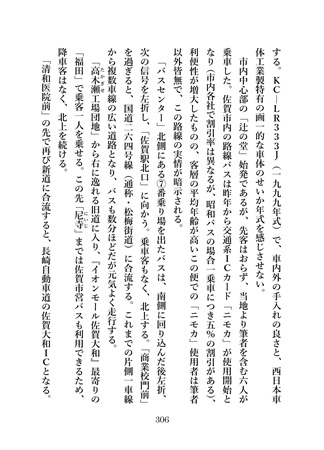 する。ＫＣ―ＬＲ３３３Ｊ（一九九九年式）で、車内外の手入れの良さと、西日本車
体工業製特有の画一的な車体のせいか年式を感じさせない。
　市内中心部の「辻の堂」始発であるが、先客はおらず、当地より筆者を含む六人が
乗車した。佐賀市内の路線バスは昨年から交通系ＩＣカード「ニモカ」が使用開始と
なり（市内各社で割引率は異なるが、昭和バスの場合一乗車につき五％の割引がある）、
利便性が増大したものの、客層の平均年齢が高いこの便での「ニモカ」使用者は筆者
以外皆無で、この路線の実情が暗示される。
　「バスセンター」北側にある⑦番乗り場を出たバスは、南側に回り込んだ後左折、
次の信号を左折し、「佐賀駅北口」に向かう。乗車客もなく、北上する。「商業校門前」
を過ぎると、国道二六四号線（通称・松梅街道）に合流する。これまでの片側一車線
から複数車線の広い道路となり、バスも数分ほどだが元気よく走行する。
　「高木瀬工場団地」から右に逸れる旧道に入り、「イオンモール佐賀大和」最寄りの
たかぎせ
「福田」で乗客一人を乗せる。この先「尼寺」までは佐賀市営バスも利用できるため、
にいじ
降車客はなく、北上を続ける。
　「清和医院前」の先で再び新道に合流すると、長崎自動車道の佐賀大和ＩＣとなる。
306